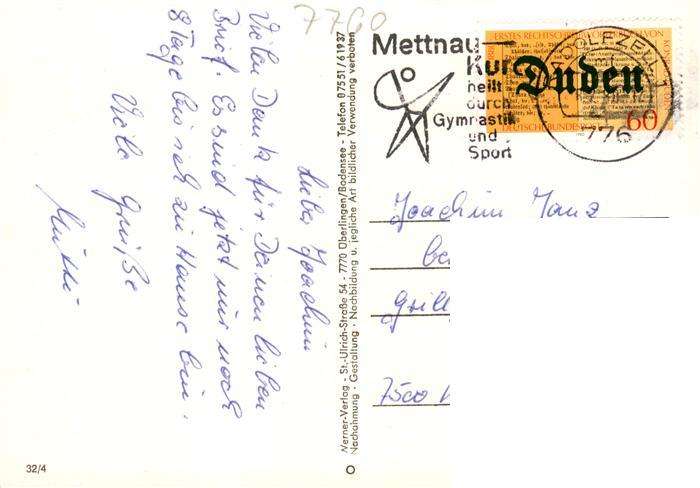 7760
Mettnau
Kur
heilt
durch
Gymnastik
und
Sport
Duden
60
776
Lieber Joachim
Vielen Dank für Deinen lieben
Brief. Es sind jetzt nur noch
8 Tage bis ich zu Hause bin.
Viele Grüße
Mutti
Werner-Verlag - St.-Ulrich-Straße 54 - 7770 Überlingen/Bodensee - Telefon 07551/61937
Nachahmung - Gestaltung - Nachbildung u. jegliche Art bildlicher Verwendung verboten
Joachim Manz
be
Grill
7500 K
32/4